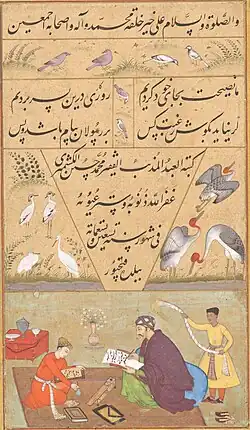 والصلوة والسلام علی خیر خلقه محمد وآله واصحابه اجمعین
ما نصیحت بجای خود کردیم روزگاری درین بسر بردیم
گر نیاید بگوش رغبت کس بر رسولان پیام باشد و بس
کتبه العبد المذنب الفقیر محمد حسین الکشمیری
غفر الله ذنوبه وستر عیوبه
فی شهور سنه تسعین وتسعمائة
ببلده فتحپور